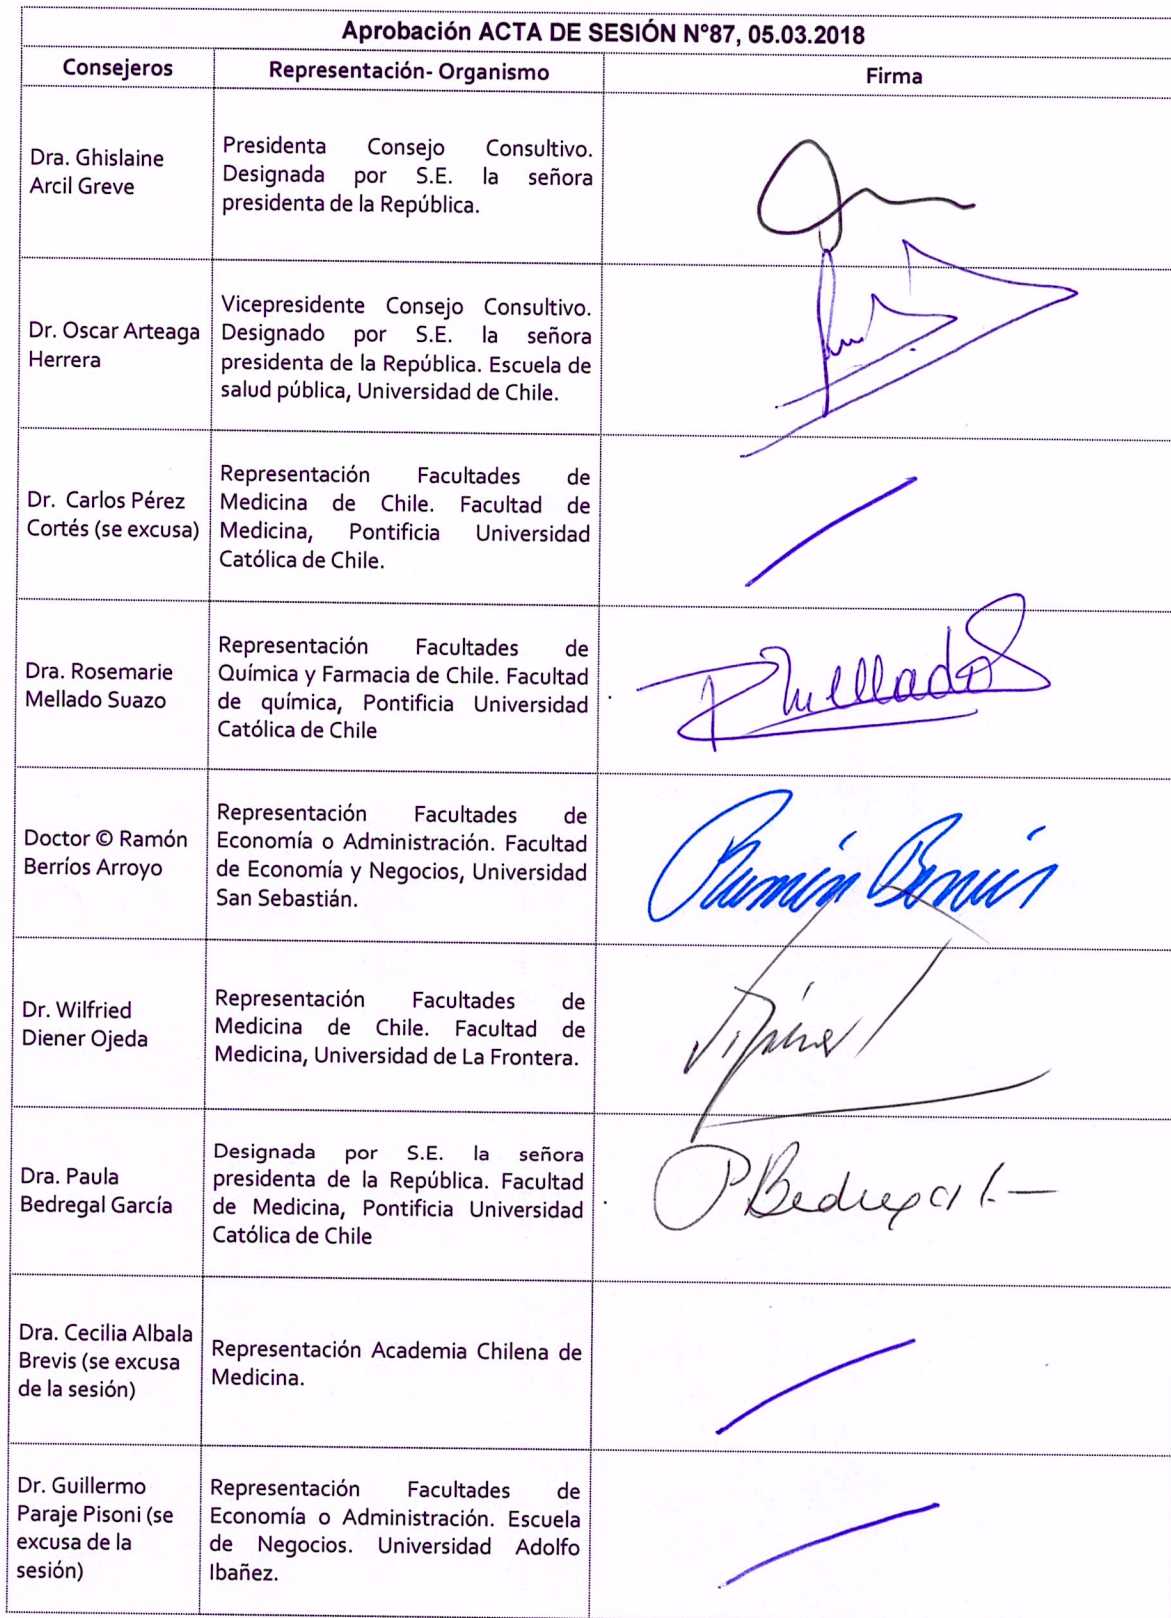 Aprobación ACTA DE SESIÓN N°87, 05.03.2018
Consejeros
Representación- Organismo
Firma
Dra. Ghislaine
Arcil Greve
Presidenta Consejo Consultivo.
Designada por S.E. la señora
presidenta de la República.
Dr. Oscar Arteaga
Herrera
Vicepresidente Consejo Consultivo.
Designado por S.E. la señora
presidenta de la República. Escuela de
salud pública, Universidad de Chile.
Dr. Carlos Pérez
Cortés (se excusa)
Representación Facultades de
Medicina de Chile. Facultad de
Medicina, Pontificia Universidad
Católica de Chile.
Dra. Rosemarie
Mellado Suazo
Representación Facultades de
Química y Farmacia de Chile. Facultad
de química, Pontificia Universidad
Católica de Chile
RMellado S
Doctor © Ramón
Berríos Arroyo
Representación Facultades de
Economía o Administración. Facultad
de Economía y Negocios, Universidad
San Sebastián.
Ramón Berríos
Dr. Wilfried
Diener Ojeda
Representación Facultades de
Medicina de Chile. Facultad de
Medicina, Universidad de La Frontera.
Dra. Paula
Bedregal García
Designada por S.E. la señora
presidenta de la República. Facultad
de Medicina, Pontificia Universidad
Católica de Chile
P Bedregal
Dra. Cecilia Albala
Brevis (se excusa
de la sesión)
Representación Academia Chilena de
Medicina.
Dr. Guillermo
Paraje Pisoni (se
excusa de la
sesión)
Representación Facultades de
Economía o Administración. Escuela
de Negocios. Universidad Adolfo
Ibañez.